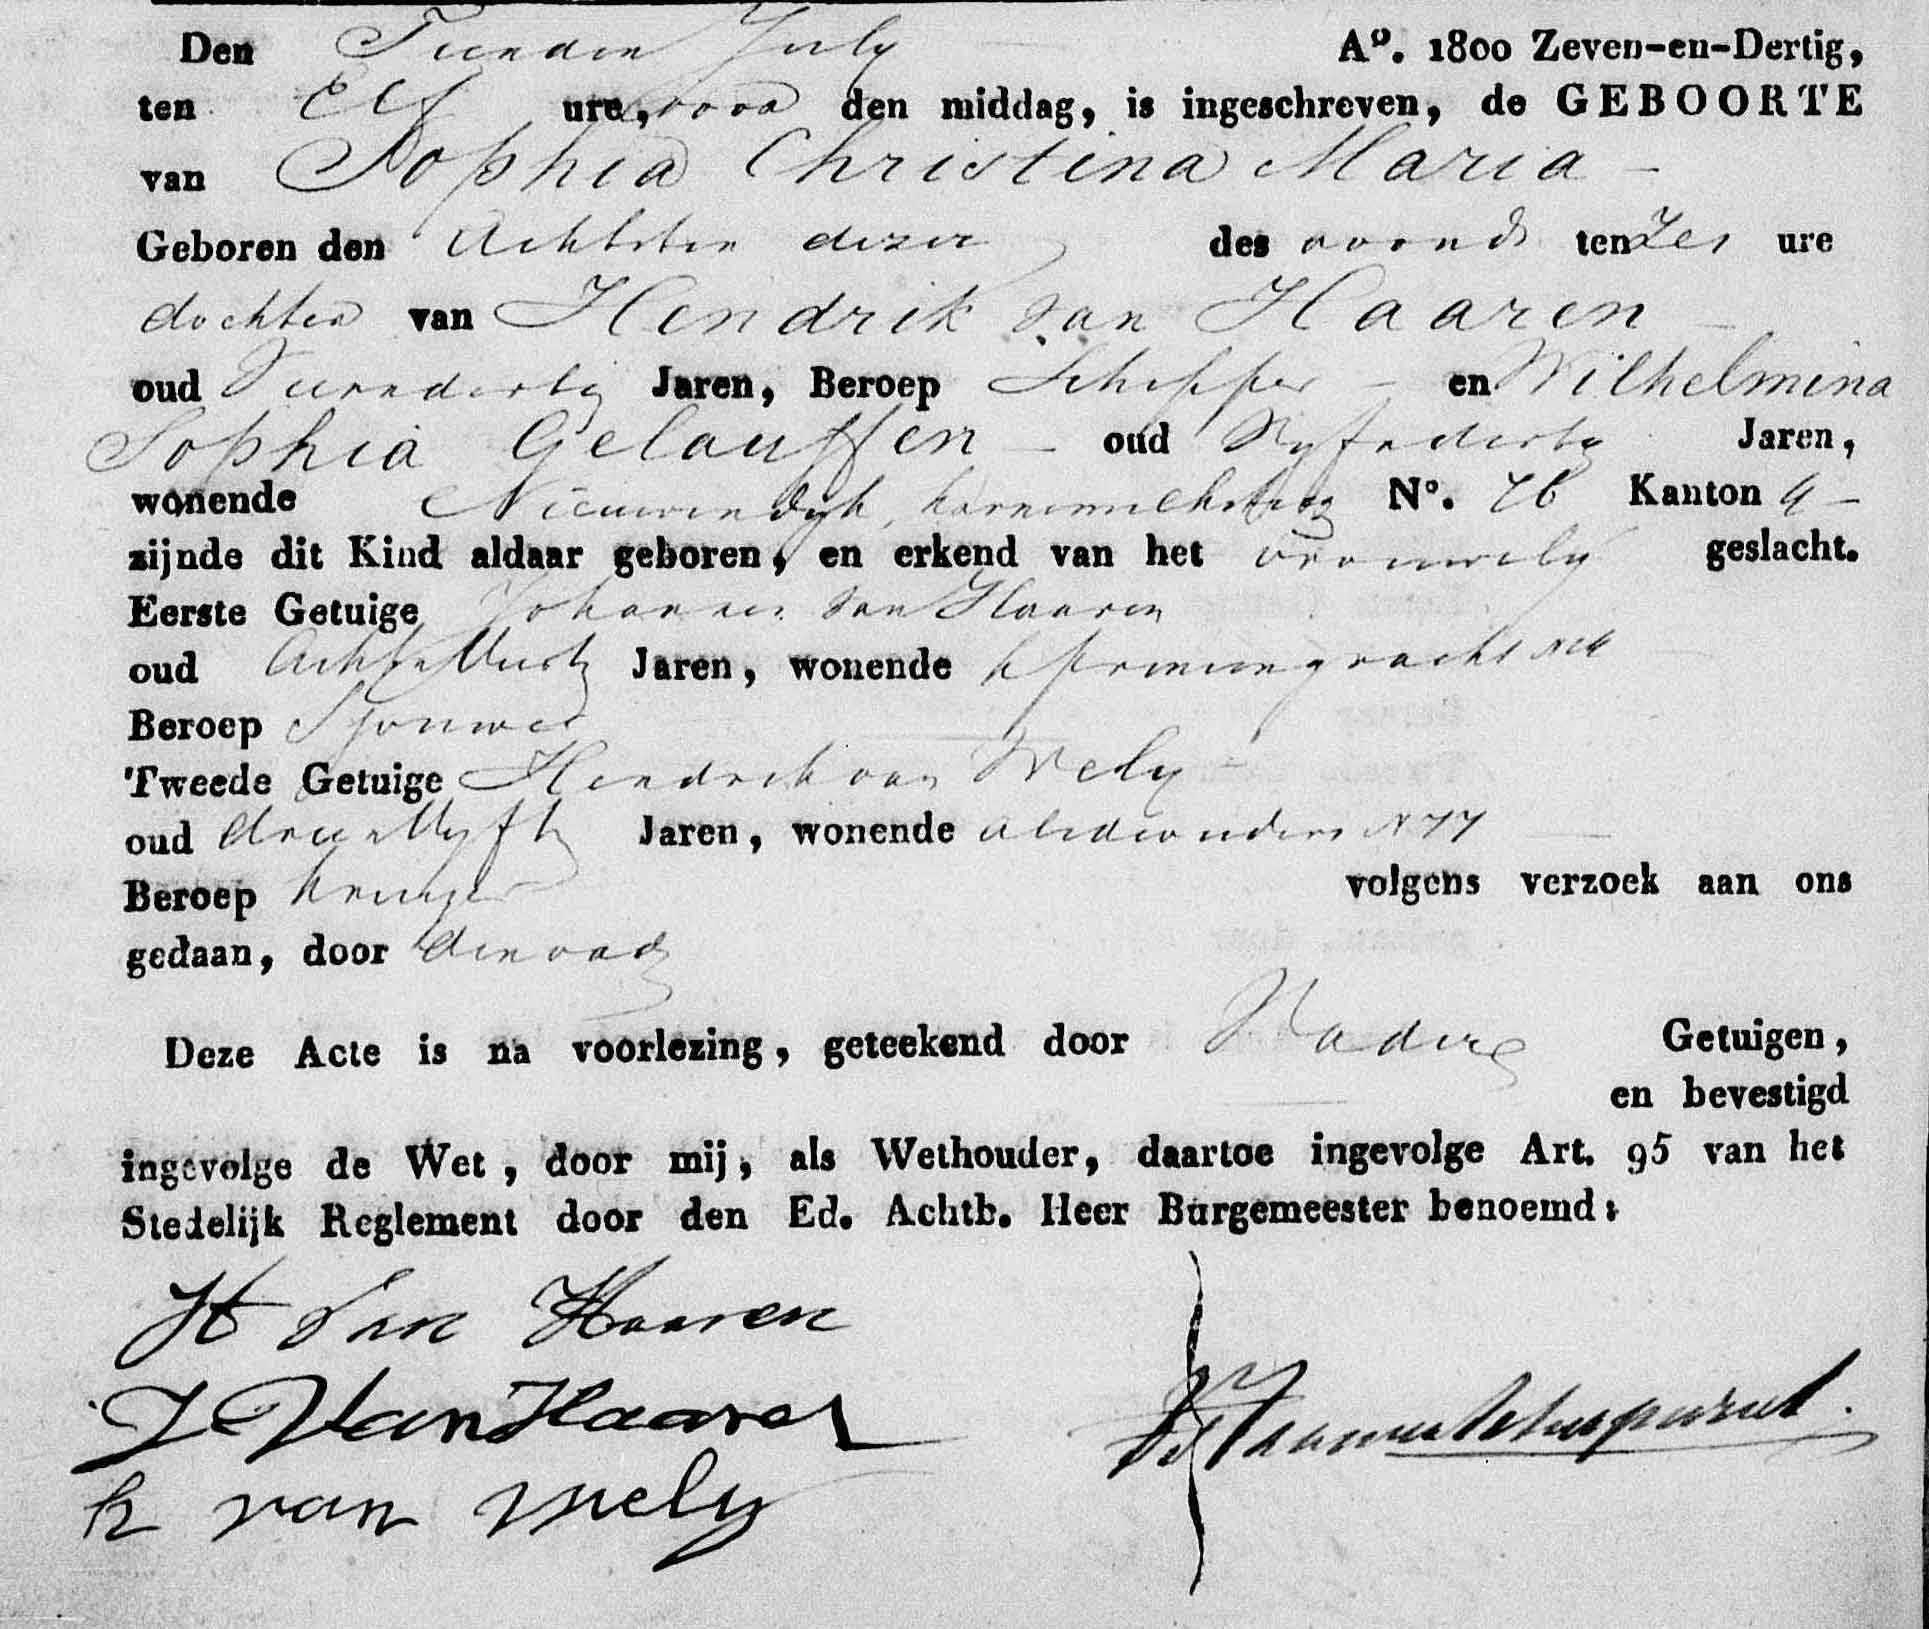 Den Tienden July A°. 1800 Zeven-en-Dertig,
ten Elf ure, voor den middag, is ingeschreven, de GEBOORTE
van Sophia Christina Maria
Geboren den Achtsten dezer des avonds ten Zes ure
dochter van Hendrik van Haaren
oud Jaren, Beroep Schipper en Wilhelmina
Sophia Gelauffen oud Vyfendertig Jaren,
wonende Nieuwendyk, Karnemelksteeg N°. 76 Kanton 4
zijnde dit Kind aldaar geboren, en erkend van het vrouwely geslacht.
Eerste Getuige Johannes van Haaren
oud Jaren, wonende
Beroep Sjouwer
Tweede Getuige Hendrik van Wely
oud Jaren, wonende N 77
Beroep Kruijer
gedaan, door den vader volgens verzoek aan ons
Deze Acte is na voorlezing, geteekend door Vader Getuigen,
en bevestigd
ingevolge de Wet, door mij, als Wethouder, daartoe ingevolge Art. 95 van het
Stedelijk Reglement door den Ed. Achtb. Heer Burgemeester benoemd:
H van Haaren
J Van Haaren
h van Wely